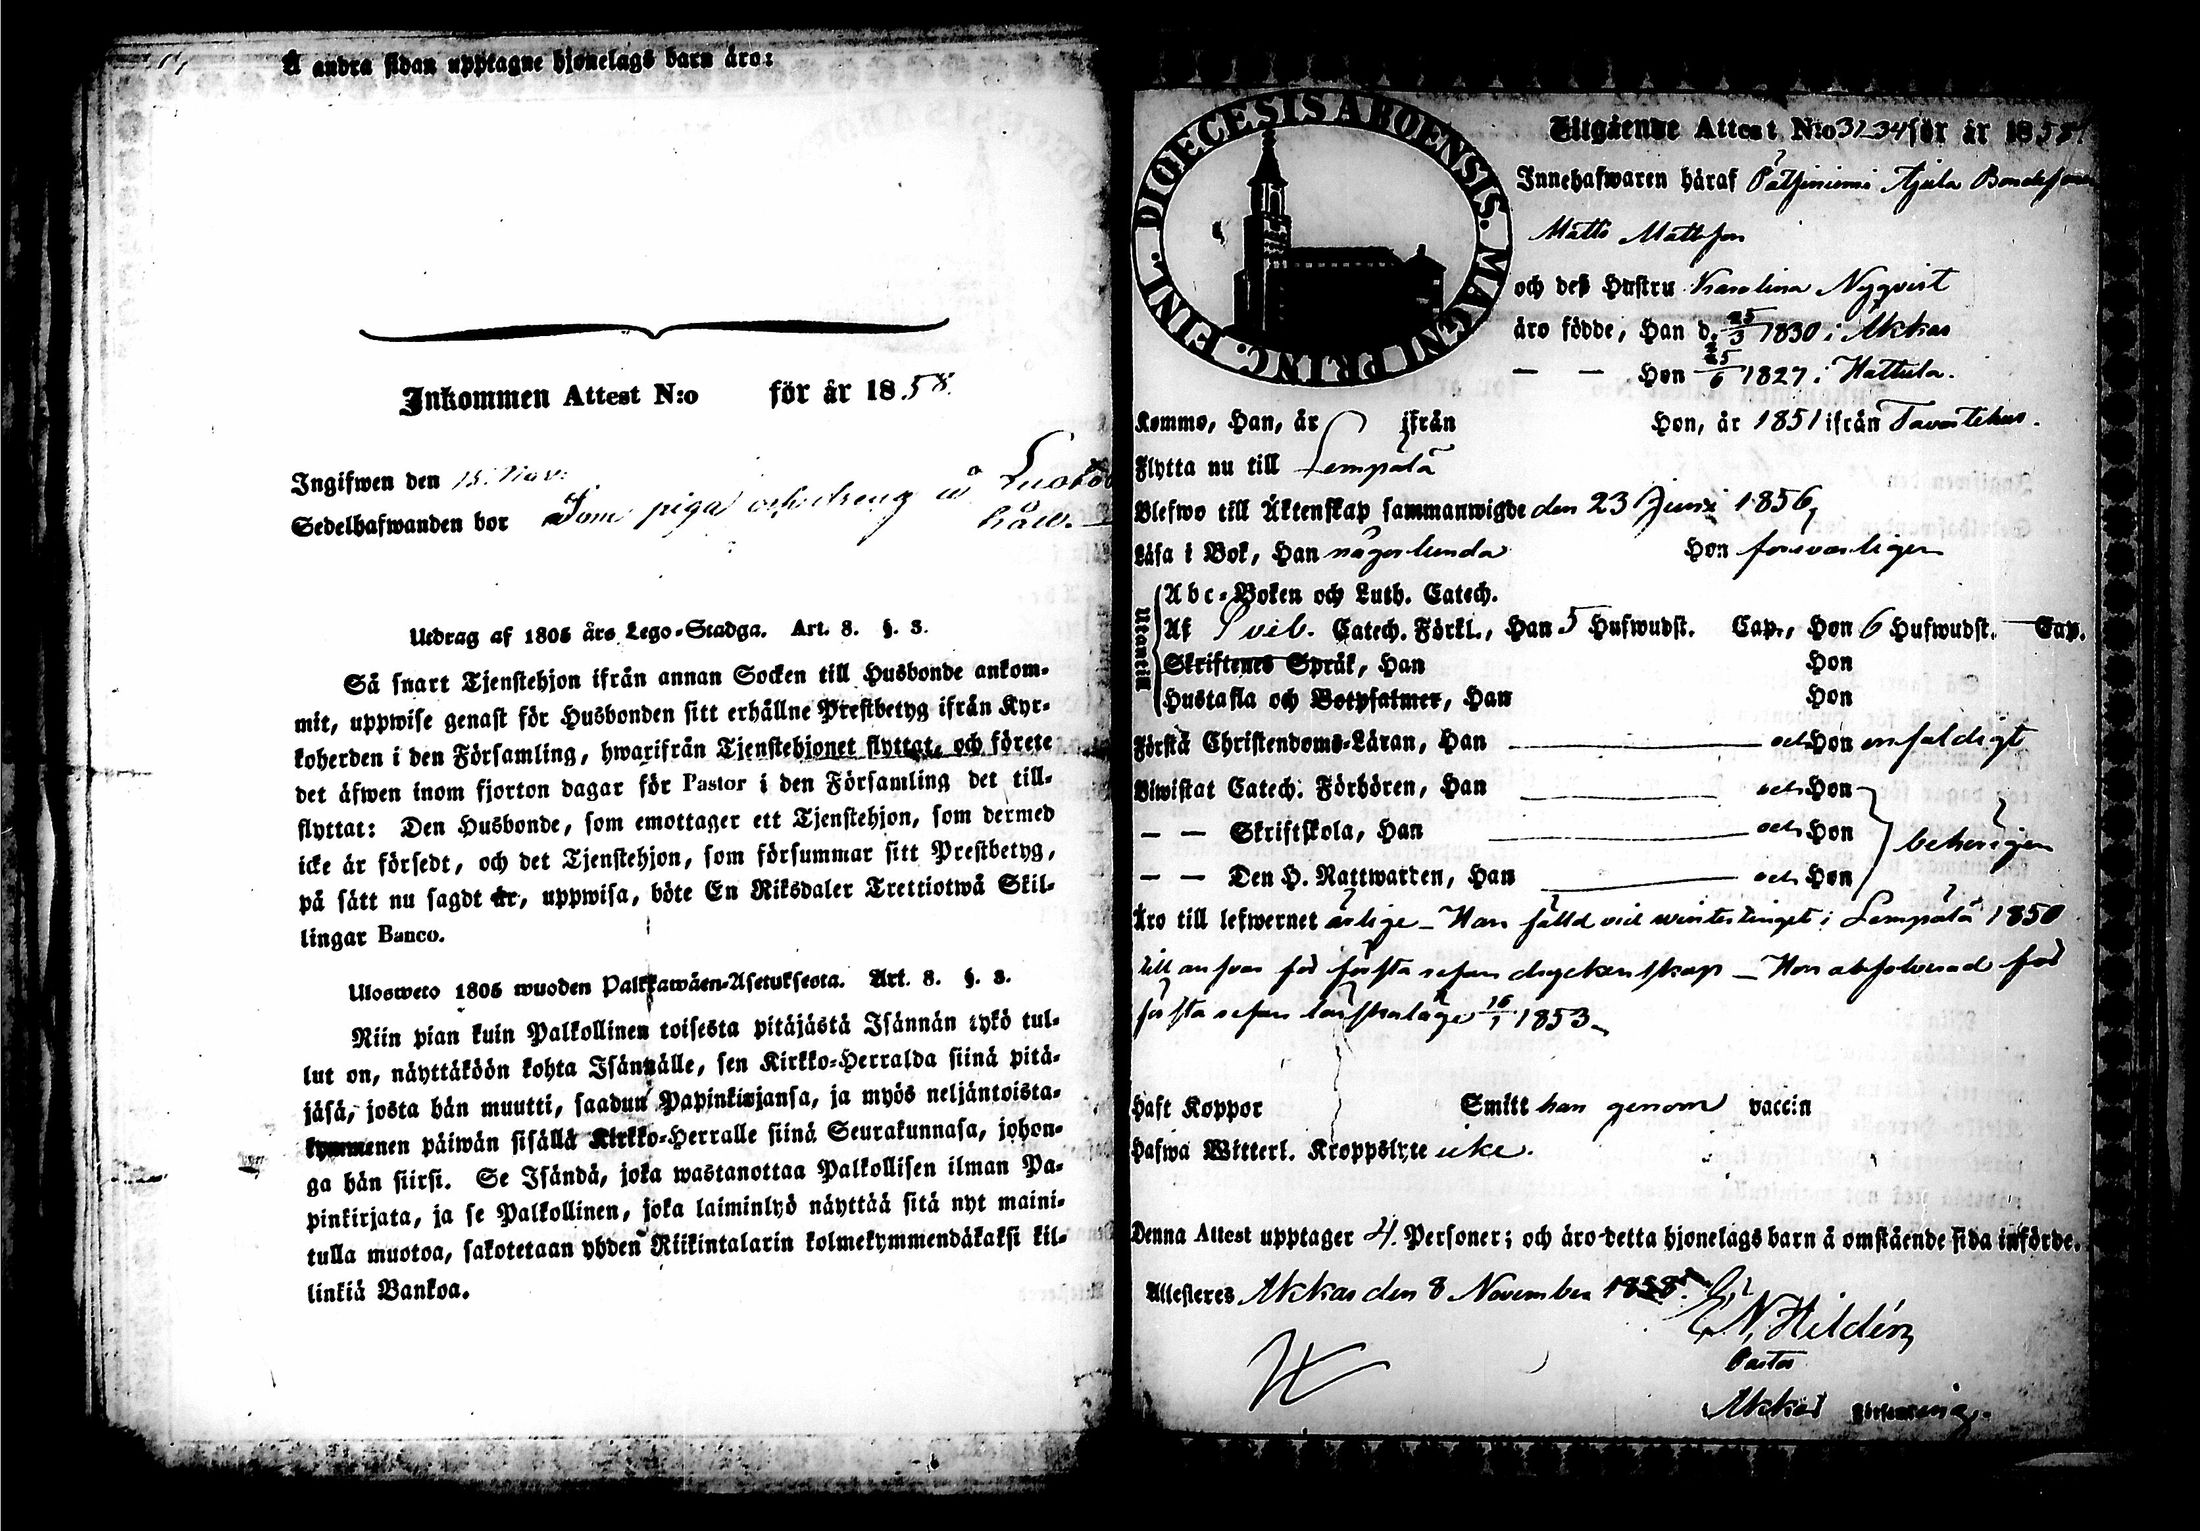 Å andra sidan upptagne hjonelags barn äro:
Inkommen Attest N:o för år 1858.
Ingifwen den 15. Nov.
Sedelhafwanden bor Som piga och dreng å
håll.
Utdrag af 1805 års Lego-Stadga. Art. 8. §. 3.
Så snart Tjenstehjon ifrån annan Socken till Husbonde ankom-
mit, uppwise genast för Husbonden sitt erhållne Prestbetyg ifrån Kyr-
koherden i den Församling, hwarifrån Tjenstehjonet flyttat, och förete
det äfwen inom fjorton dagar för Pastor i den Församling det till-
flyttat: Den Husbonde, som emottager ett Tjenstehjon, som dermed
icke är försedt, och det Tjenstehjon, som försummar sitt Prestbetyg,
på sätt nu sagdt är, uppwisa, böte En Riksdaler Trettiotwå Skil-
lingar Banco.
Ulosweto 1805 wuoden Palkkawäen-Asetuksesta. Art. 8. §. 3.
Niin pian kuin Palkollinen toisesta pitäjästä Isännän tykö tul-
lut on, näyttäköön kohta Isännälle, sen Kirkko-Herralda siinä pitä-
jäsä, josta hän muutti, saadun Papinkirjansa, ja myös neljäntoista-
kymmenen päiwän sisällä Kirkko-Herralle siinä Seurakunnasa, johon-
ga hän siirsi. Se Isändä, joka wastanottaa Palkollisen ilman Pa-
pinkirjata, ja se Palkollinen, joka laiminlyö näyttää sitä nyt maini-
tulla muotoa, sakotetaan yhden Riikintalarin kolmekymmendäkaksi kil-
linkiä Bankoa.
DIOECESIS ABOENSIS. MAGNI PRINC. FINL.
Utgående Attest N:o 31-34 för år 1858.
Innehafwaren häraf Pätsiniemi Ajula Bondeson
Matts Mattsson
och deß Hustru Karolina Nyqvist
äro födde, Han d. 25/3 1830 i Akkas
— — Hon 25/6 1827 i Hattula.
Kommo, Han, år ifrån Hon, år 1851 ifrån Tavastehus.
Flytta nu till Lempälä
Blefwo till Äktenskap sammanwigde den 23 Juni 1856,
Läsa i Bok, Han någorlunda Hon försvarligen
Utantill
Abc-Boken och Luth. Catech.
Af Svib. Catech. Förkl., Han 5 Hufwudst. Cap., Hon 6 Hufwudst. — Cap.
Skriftenes Språk, Han Hon
Hustafla och Botpsalmer, Han Hon
Förstå Christendoms-Läran, Han — och Hon enfaldigt
Biwistat Catech. Förhören, Han — och Hon
— — Skriftskola, Han — och Hon behörigen
— — Den H. Nattwarden, Han — och Hon
Äro till lefwernet ärlige – Han fälld vid wintertinget i Lempälä 1850
till answar för första resan dryckenskap – Hon absolverad för
första resan lönskaläge 16/1 1853.
Haft Koppor Smitt han genom vaccin
Hafwa Witterl. Kroppslyte icke.
Denna Attest upptager 4. Personer; och äro detta hjonelags barn å omstående sida införde.
Attesteres Akkas den 8 November 1858.
N. Hildén
Pastor
Akkas Församling.